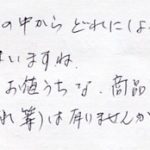 の中から どれに(よ
いますね.
お値うちな. 商品
れ 等)は有りませんか